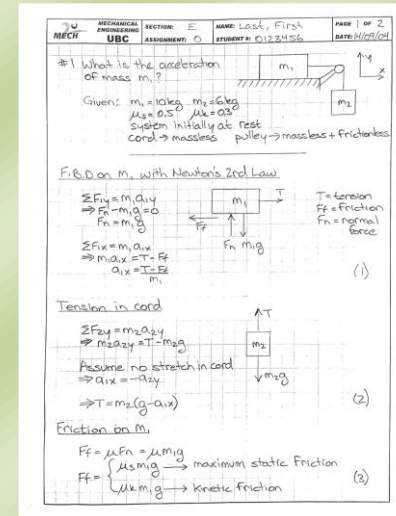 20
MECH
MECHANICAL
ENGINEERING
UBC
SECTION: E
ASSIGNMENT: 0
NAME: Last, First
STUDENT #: 0123456
PAGE 1 OF 2
DATE: 14/09/04
#1 What is the acceleration
of mass m₁?
m₁
y
x
m₂
Given: m₁ = 10kg m₂ = 6kg
μs = 0.5 μk = 0.3
system initially at rest
cord → massless pulley → massless + frictionless
F.B.D on m₁ with Newton's 2nd Law
ΣF₁y = m₁a₁y
⇒ Fn - m₁g = 0
Fn = m₁g
m₁
T
Ff
Fn m₁g
T = tension
Ff = friction
Fn = normal
force
ΣF₁x = m₁a₁x
⇒ m₁a₁x = T - Ff
a₁x = T - Ff / m₁
(1)
Tension in cord
ΣF₂y = m₂a₂y
⇒ m₂a₂y = T - m₂g
T
m₂
m₂g
Assume no stretch in cord
⇒ a₁x = -a₂y
⇒ T = m₂(g - a₁x)
(2)
Friction on m₁
Ff = μFn = μm₁g
Ff = { μs m₁g → maximum static friction
μk m₁g → kinetic friction
(3)